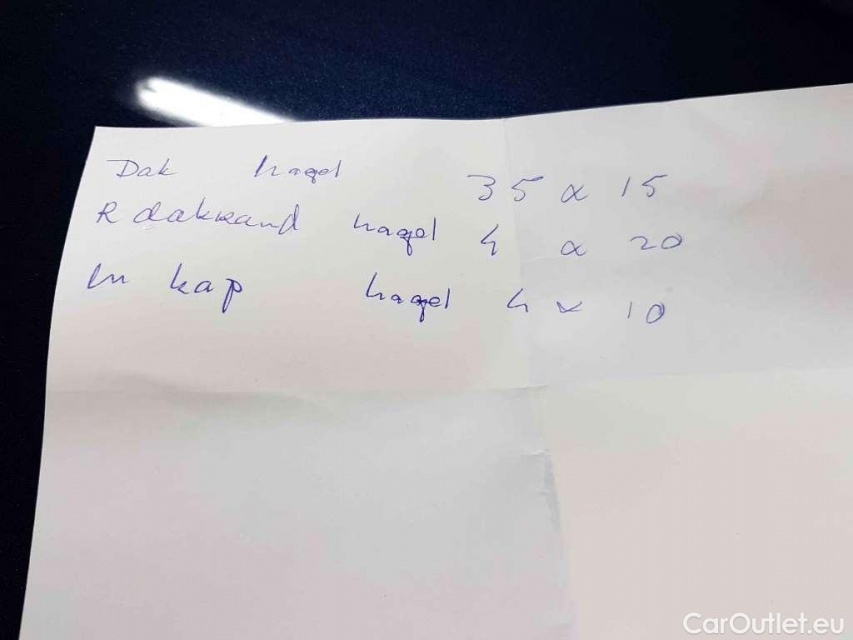 Dak hagel 35 x 15
R dakrand hagel 4 x 20
m kap hagel 4 x 10
CarOutlet.eu